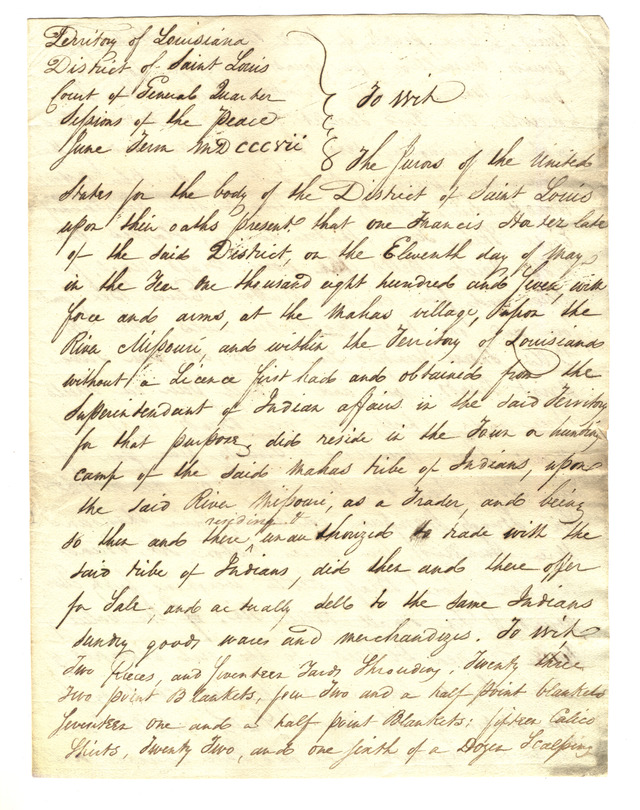 Territory of Louisiana
District of Saint Louis
Court of General Quarter
Sessions of the Peace
June Term MDCCCVII
To Wit
The Jurors of the United
States for the body of the District of Saint Louis
upon their oaths present, that one Francis late
of the said District, on the Eleventh day of May
in the Year One thousand eight hundred and Seven, with
force and arms, at the Mahas village, upon the
River Missouri, and within the Territory of Louisiana
without a Licence first had and obtained from the
Superintendant of Indian affairs in the said Territory
for that purpose, did reside in the Town or hunting
camp of the said Mahas tribe of Indians, upon
the said River Missouri, as a Trader, and being
residing &
so then and there unauthorized to trade with the
said tribe of Indians, did then and there offer
for Sale, and actually sell to the same Indians
sundry goods wares and merchandizes. To Wit
Two Pieces, and Seventeen Yards Shrouding, Twenty three
Two point Blankets, four Two and a half point blankets
Seventeen one and a half point Blankets; fifteen Calico
Shirts, Twenty Two, and one sixth of a Dozen Scalping